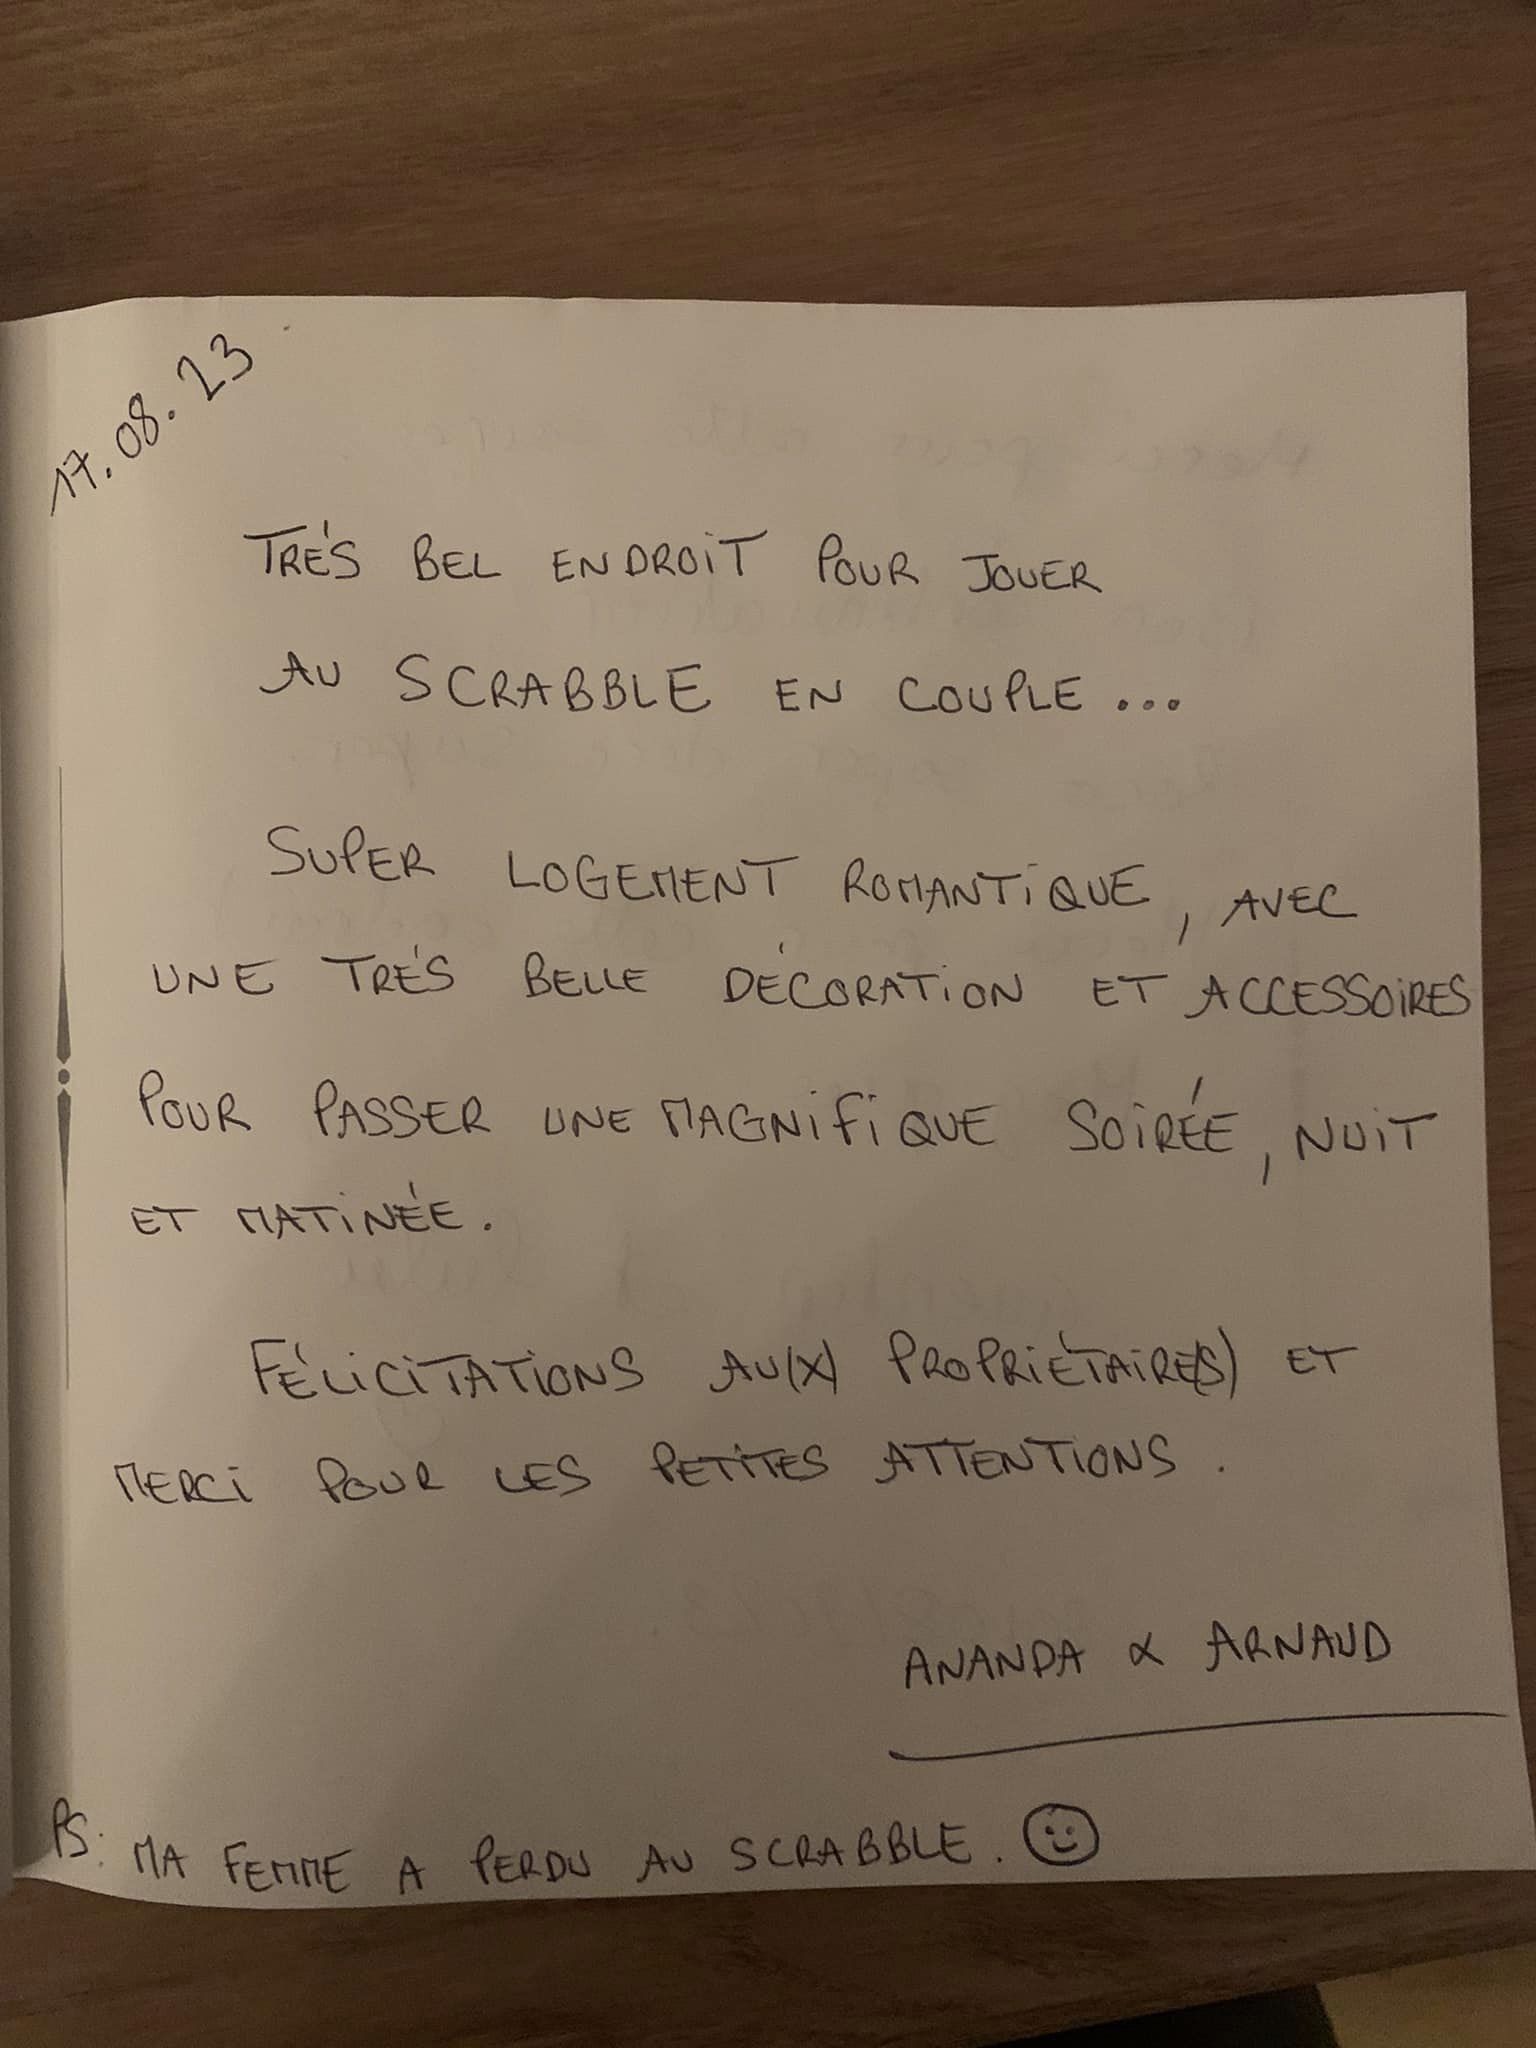 17.08.23
TRÉS BEL ENDROIT POUR JOUER
AU SCRABBLE EN COUPLE...
SUPER LOGEMENT ROMANTIQUE, AVEC
UNE TRÉS BELLE DÉCORATION ET ACCESSOIRES
POUR PASSER UNE MAGNIFIQUE SOIRÉE, NUIT
ET MATINÉE.
FÉLICITATIONS AU(X) PROPRIÉTAIRE(S) ET
MERCI POUR LES PETITES ATTENTIONS.
ANANDA & ARNAUD
PS: MA FEMME A PERDU AU SCRABBLE. ☺